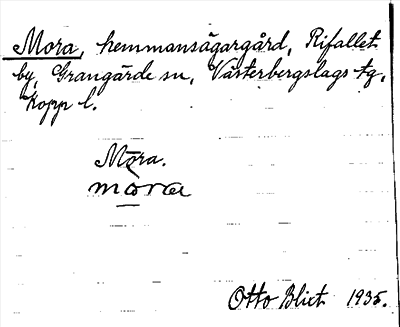 Mora, hemmansägargård, Rifallet
by, Grangärde sn, Västerbergslags tg,
Kopp l.
Mora.
mora
Otto Blixt 1935.